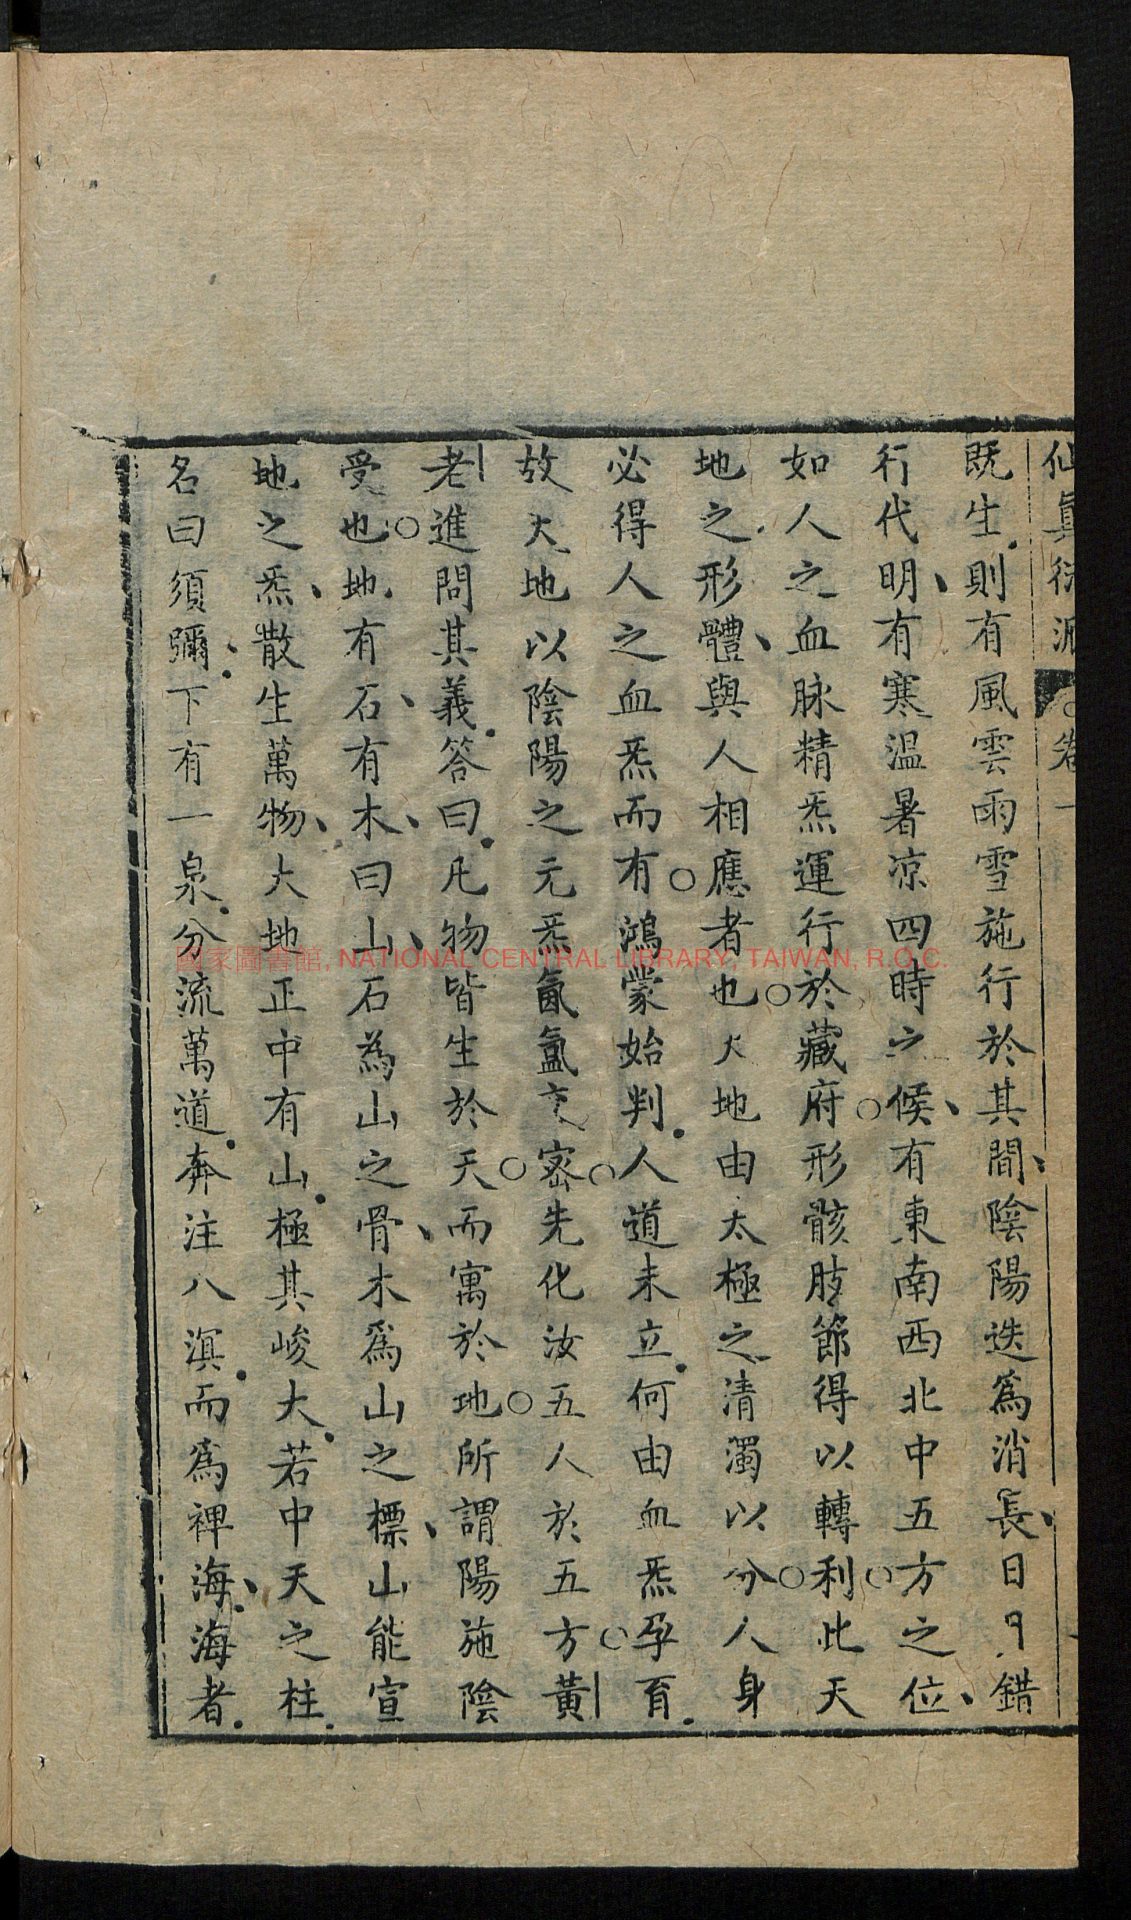 仙真衍派 卷一
既生則有風雲雨雪施行於其間陰陽迭爲消長日月錯
行代明有寒温暑凉四時之候有東南西北中五方之位
如人之血脉精炁運行於藏府形骸肢節得以轉利此天
地之形體與人相應者也大地由太極之清濁以分人身
必得人之血炁而有鴻蒙始判人道未立何由血炁孕育
故大地以陰陽之元炁氤氳交密先化汝五人於五方黃
老進問其義答曰凡物皆生於天而寓於地所謂陽施陰
受也地有石有木曰山石為山之骨木爲山之標山能宣
地之炁散生萬物大地正中有山極其峻大若中天之柱
名曰須彌下有一泉分流萬道奔注八溟而爲裨海海者
國家圖書館, NATIONAL CENTRAL LIBRARY, TAIWAN, R.O.C.